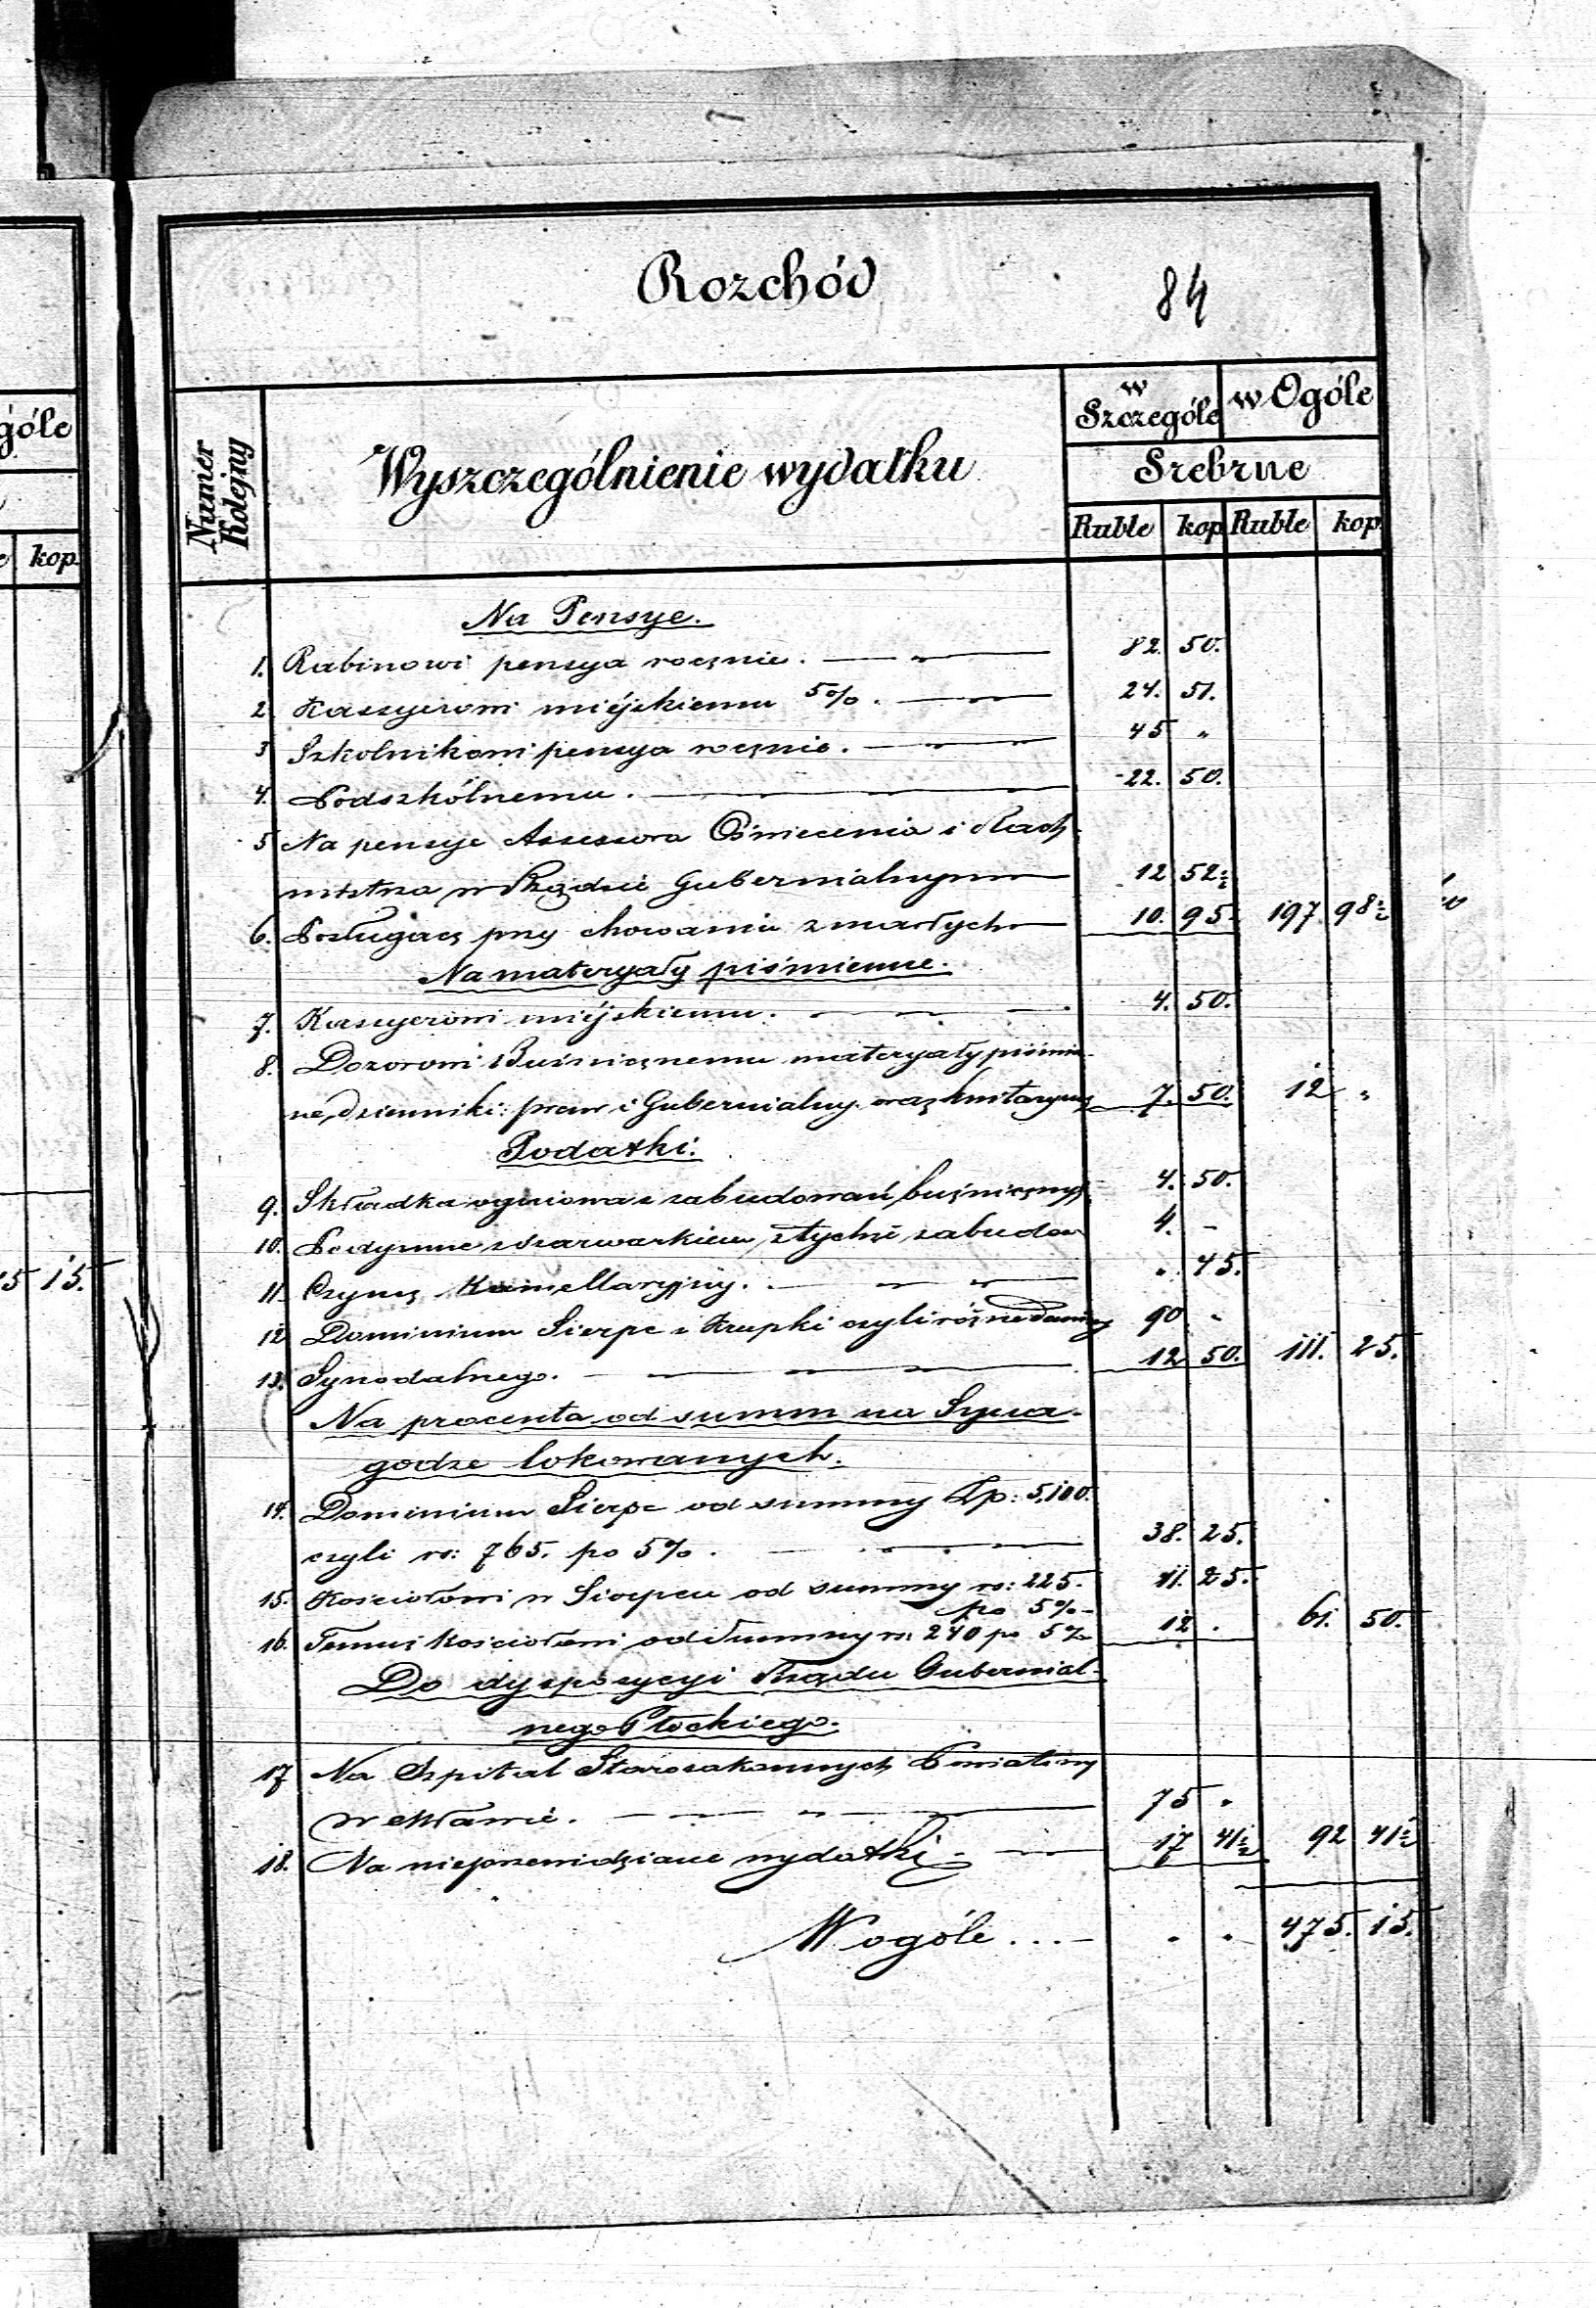 góle
kop.
15.
Rozchód
84
Numer Kolejny
Wyszczególnienie wydatku
w Szczególe
w Ogóle
Srebrne
Ruble kop Ruble kop.
Na Pensye.
1. Rabinowi pensya rocznie. 82. 50.
2 Kassyerowi miéjskiemu 5%. 24. 51.
3 Szkolnikowi pensya rocznie. 45 "
4. Podszkólnemu. 22. 50.
5 Na pensye Assessora Oświecenia i
w Rządzie Gubernialnym 12 52½
6. Posługacz przy chowaniu zmarłych 10. 95. 197. 98½
Na materyały piśmienne.
7. Kassyerowi miéjskiemu. 4. 50.
8. Dozorowi Buźnicznemu materyały piśmien-
ne, dzienniki: praw i Gubernialny. oraz 7. 50. 12 "
Podatki.
9. Składka ogniowa z zabudowań buźnicznych 4. 50.
10. Podymne z szarwarkiem z tychże zabudow 4. -
11. Czynsz Kamellaryjny. " 45.
12 Dominium Sierpc z Krupki czyli różne Daniny 90 "
13. Synodalnego. 12 50. 111. 25.
Na procenta od summ na Syna-
godze lokowanych.
14. Dominium Sierpc od summy Zp: 5,100.
czyli rs: 765. po 5%. 38. 25.
15. Kościołowi w Sierpcu od summy rs: 225. 11. 25.
po 5%-
16. Temuż Kościołowi od Summy rs: 240 po 5% 12 . 61. 50.
Do dyspozycyi Rządu Gubernial-
nego Płockiego.
17 Na Szpital Starozakonnych Powiatowy
w Mławie. 75 "
18. Na nieprzewidziane wydatki 17 41½ 92 41½
W ogóle .... " " 475. 15.